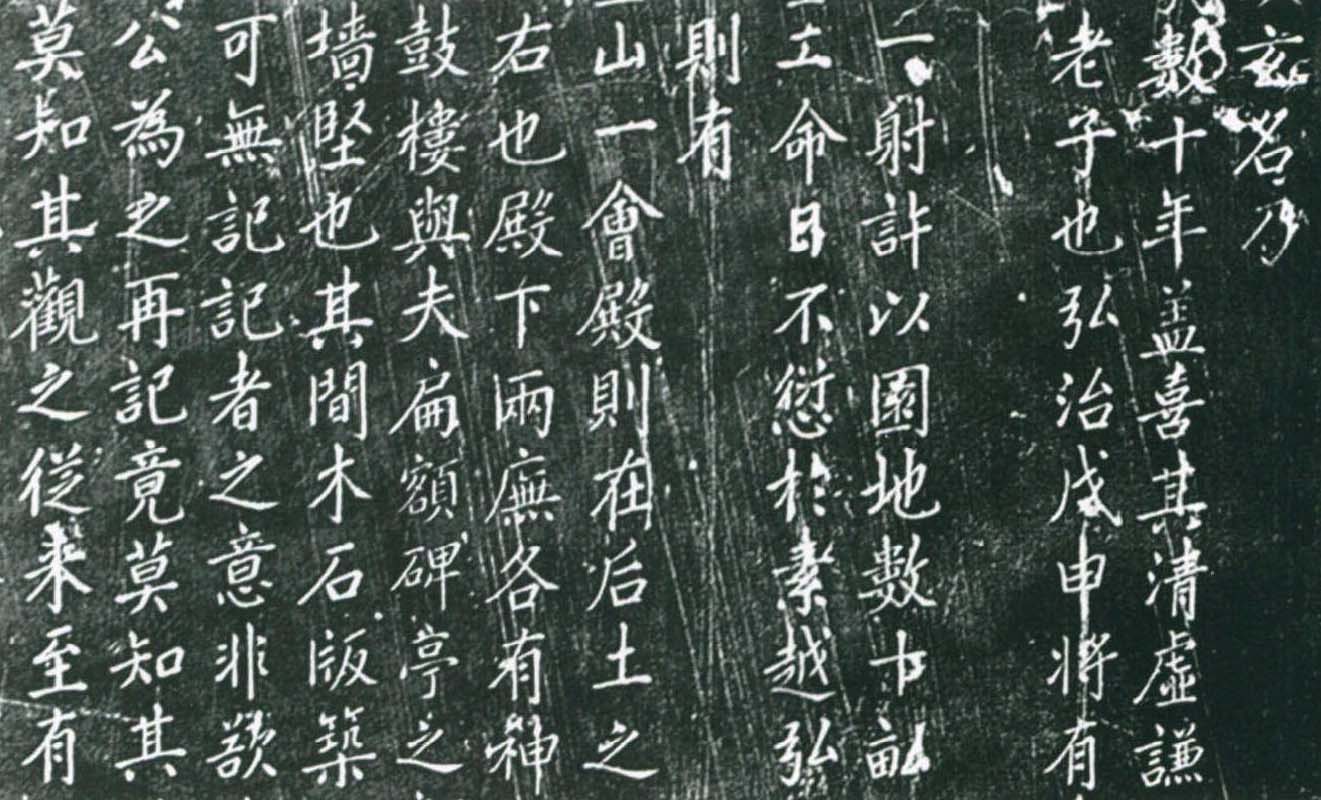 玄名乃
數十年盖喜其清虛謙
老子也弘治戊申將有
一射許以園地數十畝
士命日不愆於素越弘
則有
山一會殿則在后土之
右也殿下兩廡各有神
鼓樓與夫扁額碑亭之
墙堅也其間木石版築
可無記記者之意非欲
公為之再記竟莫知其
莫知其觀之從来至有